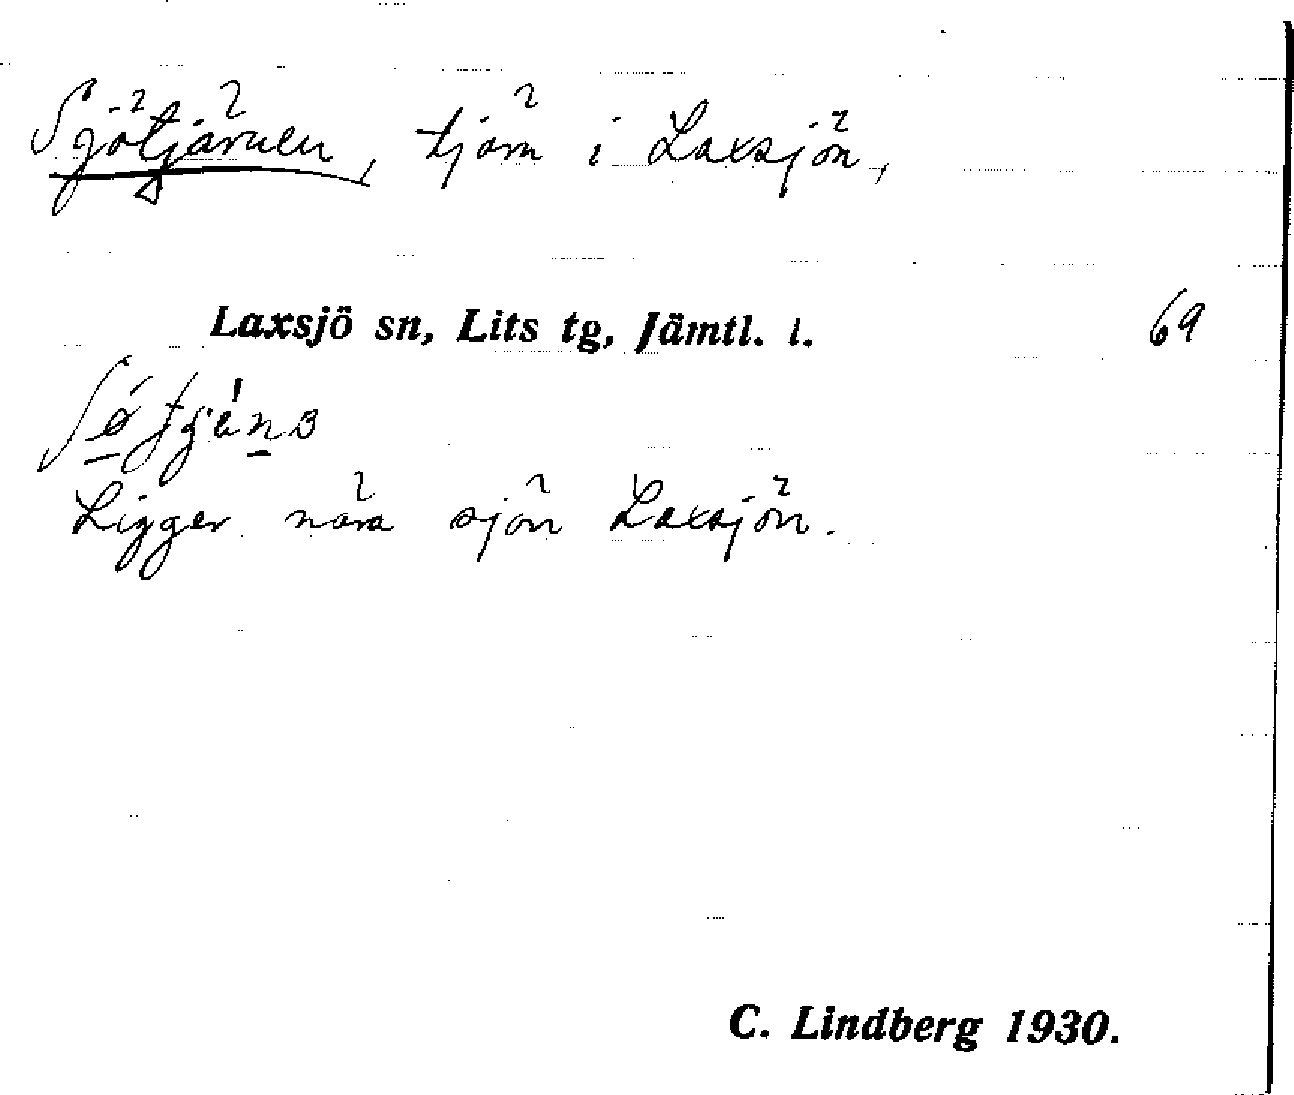 Sjötjärnen, tjärn i Laxsjön,
Laxsjö sn, Lits tg, Jämtl. l.
69
Ligger nära sjön Laxsjön.
C. Lindberg 1930.